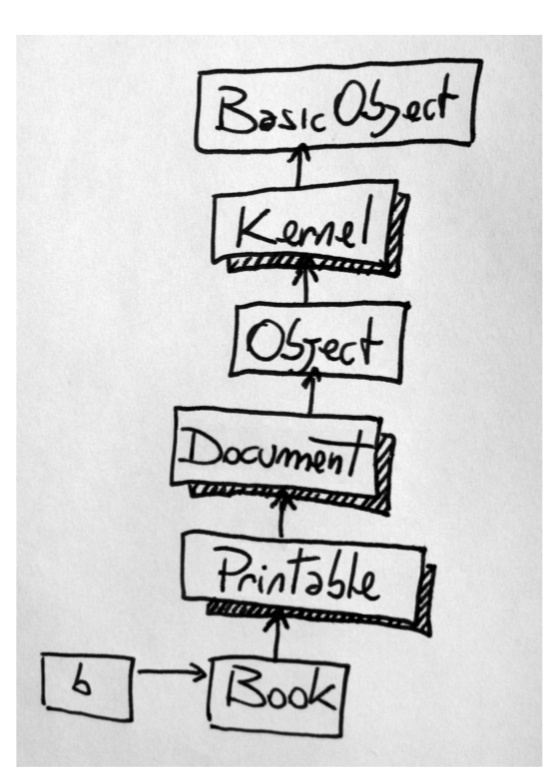 BasicObject
Kernel
Object
Document
Printable
b
Book